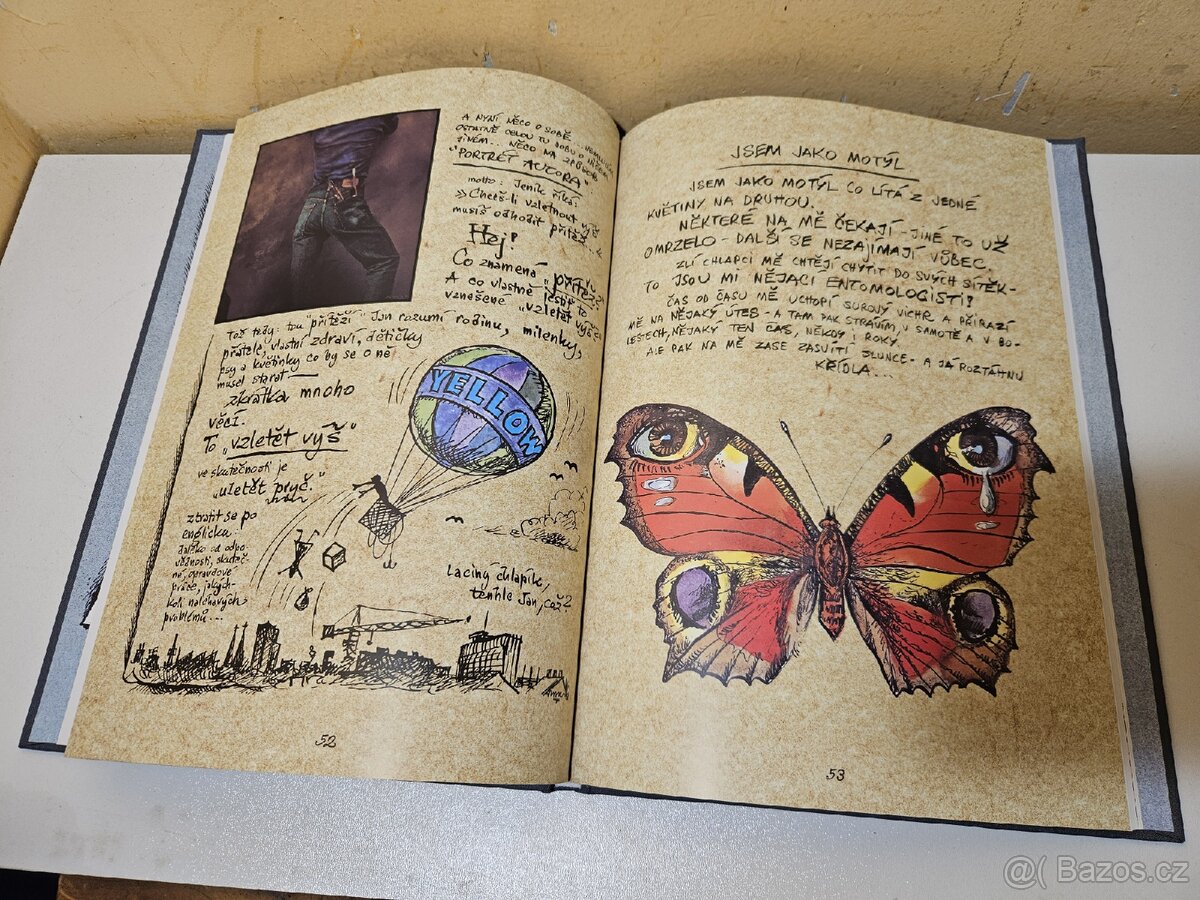 A NYNÍ NĚCO O SOBĚ...
OSTATNĚ CELOU TU DOBU O
JINÉM... NĚCO NA ZPŮSOB
"PORTRÉT AUTORA"
motto: Jeník říká:
»Chceš-li vzletnout výš
musíš odhodit přítěž...«
Hej!
Co znamená přítěž?
A co vlastně je to
vznešené "vzletět výš"
Tož tedy: tou "přítěží" Jan rozumí rodinu, milenky,
přátele, vlastní zdraví, dětičky
psy a květinky co by se o ně
musel starat
zkrátka mnoho
věcí.
To "vzletět výš"
ve skutečnosti je
"uletět pryč."
ztratit se po
anglicku
daleko od odpo-
vědnosti, skuteč-
né, opravdové
práce, jakých-
koli naléhavých
problémů...
YELLOW
Laciný chlapík,
tenhle Jan, což?
52
JSEM JAKO MOTÝL
JSEM JAKO MOTÝL CO LÍTÁ Z JEDNÉ
KVĚTINY NA DRUHOU.
NĚKTERÉ NA MĚ ČEKAJÍ - JINÉ TO UŽ
OMRZELO - DALŠÍ SE NEZAJÍMAJÍ VŮBEC.
ZLÍ CHLAPCI MĚ CHTĚJÍ CHYTIT DO SVÝCH SÍTĚK-
TO JSOU MI NĚJACÍ ENTOMOLOGISTI!
ČAS OD ČASU MĚ UCHOPÍ SUROVÝ VICHR A PŘIRAZÍ
MĚ NA NĚJAKÝ ÚTES - A TAM PAK STRÁVÍM, V SAMOTĚ A V BO-
LESTECH, NĚJAKÝ TEN ČAS, NĚKDY I ROKY.
ALE PAK NA MĚ ZASE ZASVÍTÍ SLUNCE - A JÁ ROZTÁHNU
KŘÍDLA...
53
@( Bazos.cz